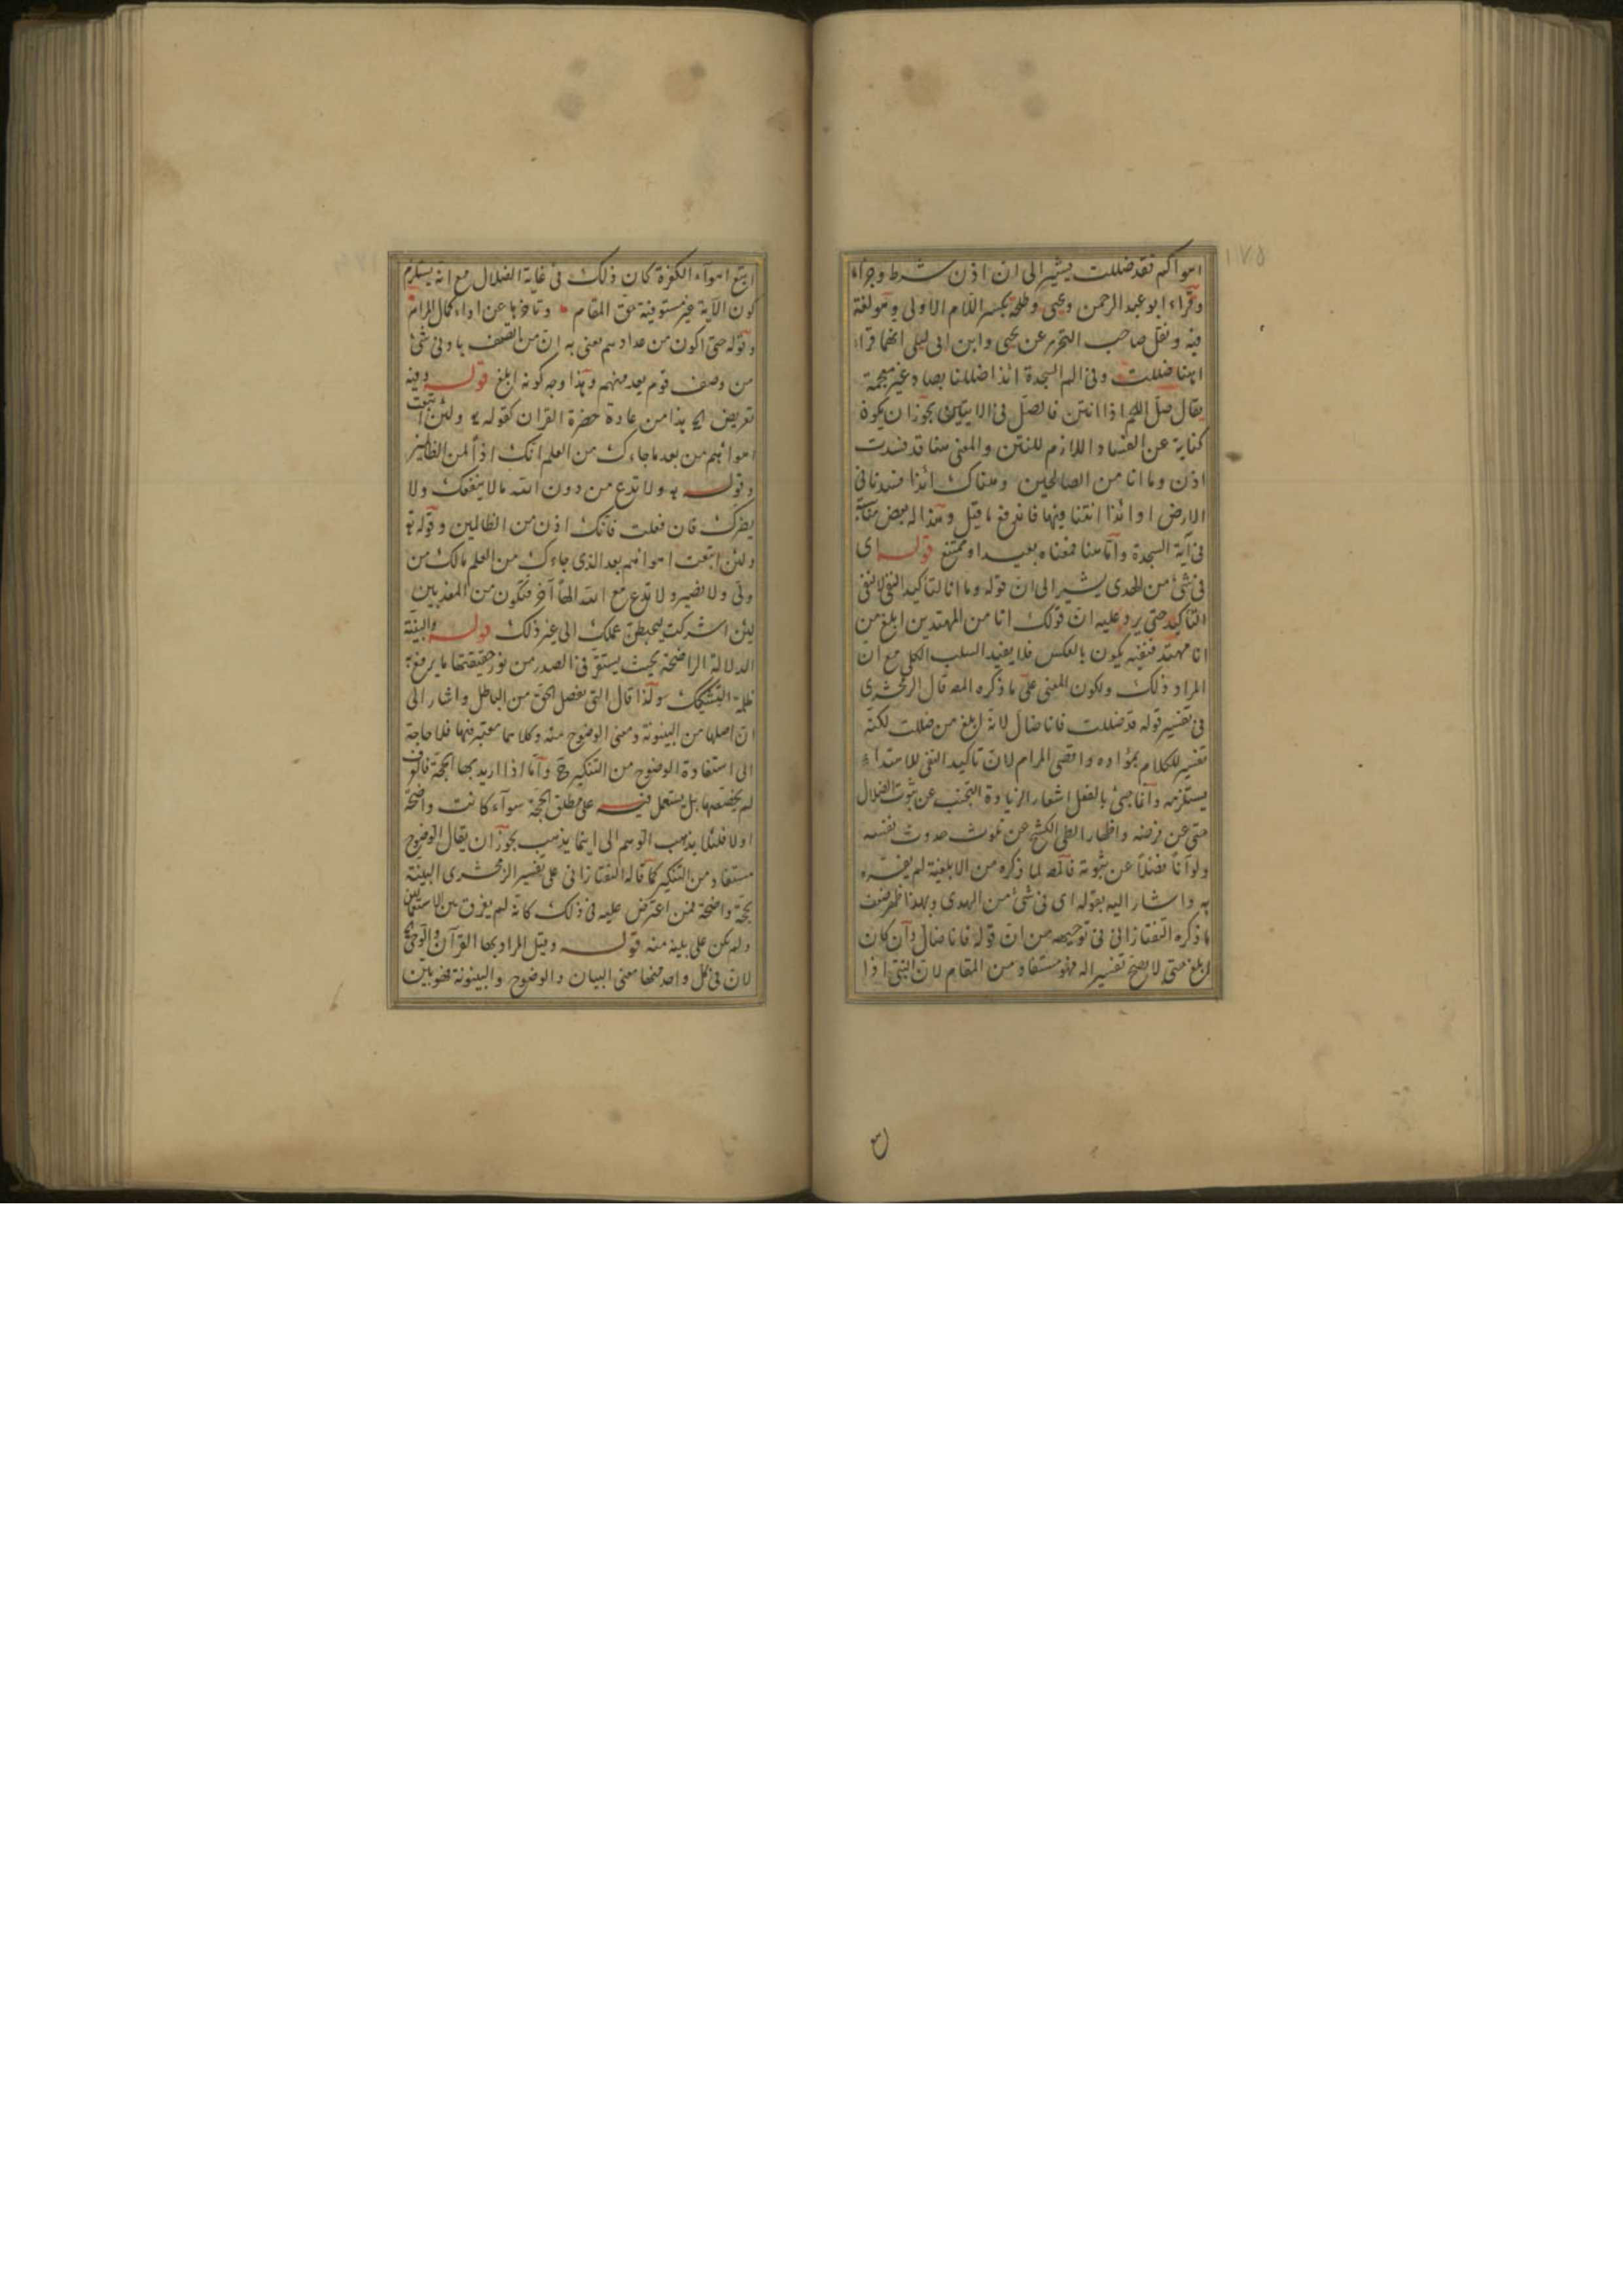 اهواكم فقد ضللت يشير الى ان اذن شرط وجزاء
وقراء ابو عبد الرحمن ويحيى وطلحة بكسر اللام الاولى وهو لغة
فيه ونقل صاحب التحرير عن يحيى وابن ابى ليلى انهما قراء
ههنا ضللت وفى الم السجدة ائذا ضللنا بصاد غير معجمة
يقال صل اللحم اذا انتن فالصل فى الايتين يجوز ان يكون
كناية عن الفساد اللازم للنتن والمعنى هنا قد فسدت
اذن وما انا من الصالحين وهناك ائذا فسدنا فى
الارض او ائذا انتنا فيها فاندفع ما قيل وهذا له بعض
فى آية السجدة واما هنا فمعناه بعيد او ممتنع قوله اى
فى شئ من الهدى يشير الى ان قوله وما انا لتأكيد النفى لا لنفى
التأكيد حتى يرد عليه ان قولك انا من المهتدين ابلغ من
انا مهتد فنفيه يكون بالعكس فلا يفيد السلب الكلى مع ان
المراد ذلك ويكون المعنى على ما ذكره المصـ قال الزمخشرى
فى تفسير قوله قد ضللت فانا ضال لانه ابلغ من ضللت لكنه
تفسير للكلام بمؤاده واقصى المرام لان تاكيد النفى للابتداء
يستلزمه وانما جئ بالفعل اشعار الزيادة التجنب عن ثبوت الضلال
حتى عن فرضه واظهارا لطى الكشح عن تلوث حدوث نفسه
ولو آنا فضلا عن ثبوته فالمصـ لما ذكره من الابلغية لم يفسره
به واشار اليه بقوله اى فى شئ من الهدى وبهذا ظهر ضعف
ما ذكره التفتازانى فى توجيهه من ان قوله فانا ضال وان كان
ابلغ حتى لا يصح تفسيرا له فهو مستفاد من المقام لان النبى اذا
اتبع اهوآء الكفرة كان ذلك فى غاية الضلال مع انه يستلزم
كون الآية غير مستوفية حق المقام وتاخرها عن اداء كمال المرام
وقوله حتى اكون من عدادهم يعنى به ان من اتصف بادنى شئ
من وصف قوم يعد منهم وهذا وجه كونه ابلغ قوله وفيه
تعريض الخ هذا من عادة حضرة القران كقوله تع ولئن اتبعت
اهوائهم من بعد ما جاءك من العلم انك اذا لمن الظالمين
وقوله تع ولا تدع من دون الله ما لا ينفعك ولا
يضرك فان فعلت فانك اذن من الظالمين وقوله تع
ولئن اتبعت اهوائهم بعد الذى جاءك من العلم مالك من
ولى ولا نصير ولا تدع مع الله الها آخر فتكون من المعذبين
لئن اشركت ليحبطن عملك الى غير ذلك قوله والبينة
الدلالة الواضحة بحيث يستقر فى الصدر من نور حقيقتها ما يرفع به
ظلمة التشكيك ولذا قال التى تفصل الحق من الباطل واشار الى
ان اصلها من البينونة ومعنى الوضوح منه وكلاهما معتبر فيها فلا حاجة
الى استفادة الوضوح من التنكير ح واما اذا اريد بها الحجة فالعرف
لم يخصصها بل يستعمل فيه على مطلق الحجة سوآء كانت واضحة
اولا فلئلا يذهب الوهم الى اينما يذهب يجوز ان يقال الوضوح
مستفاد من التنكير كما قاله التفتازانى على تفسير الزمخشرى البينة
بحجة واضحة فمن اعترض عليه فى ذلك كانه لم يفرق بين الاستعمالين
ولم يكن على بينة منه قوله وقيل المراد بها القرآن والوحى الخ
لان فى كل واحد منهما معنى البيان والوضوح والبينونة فهو بين